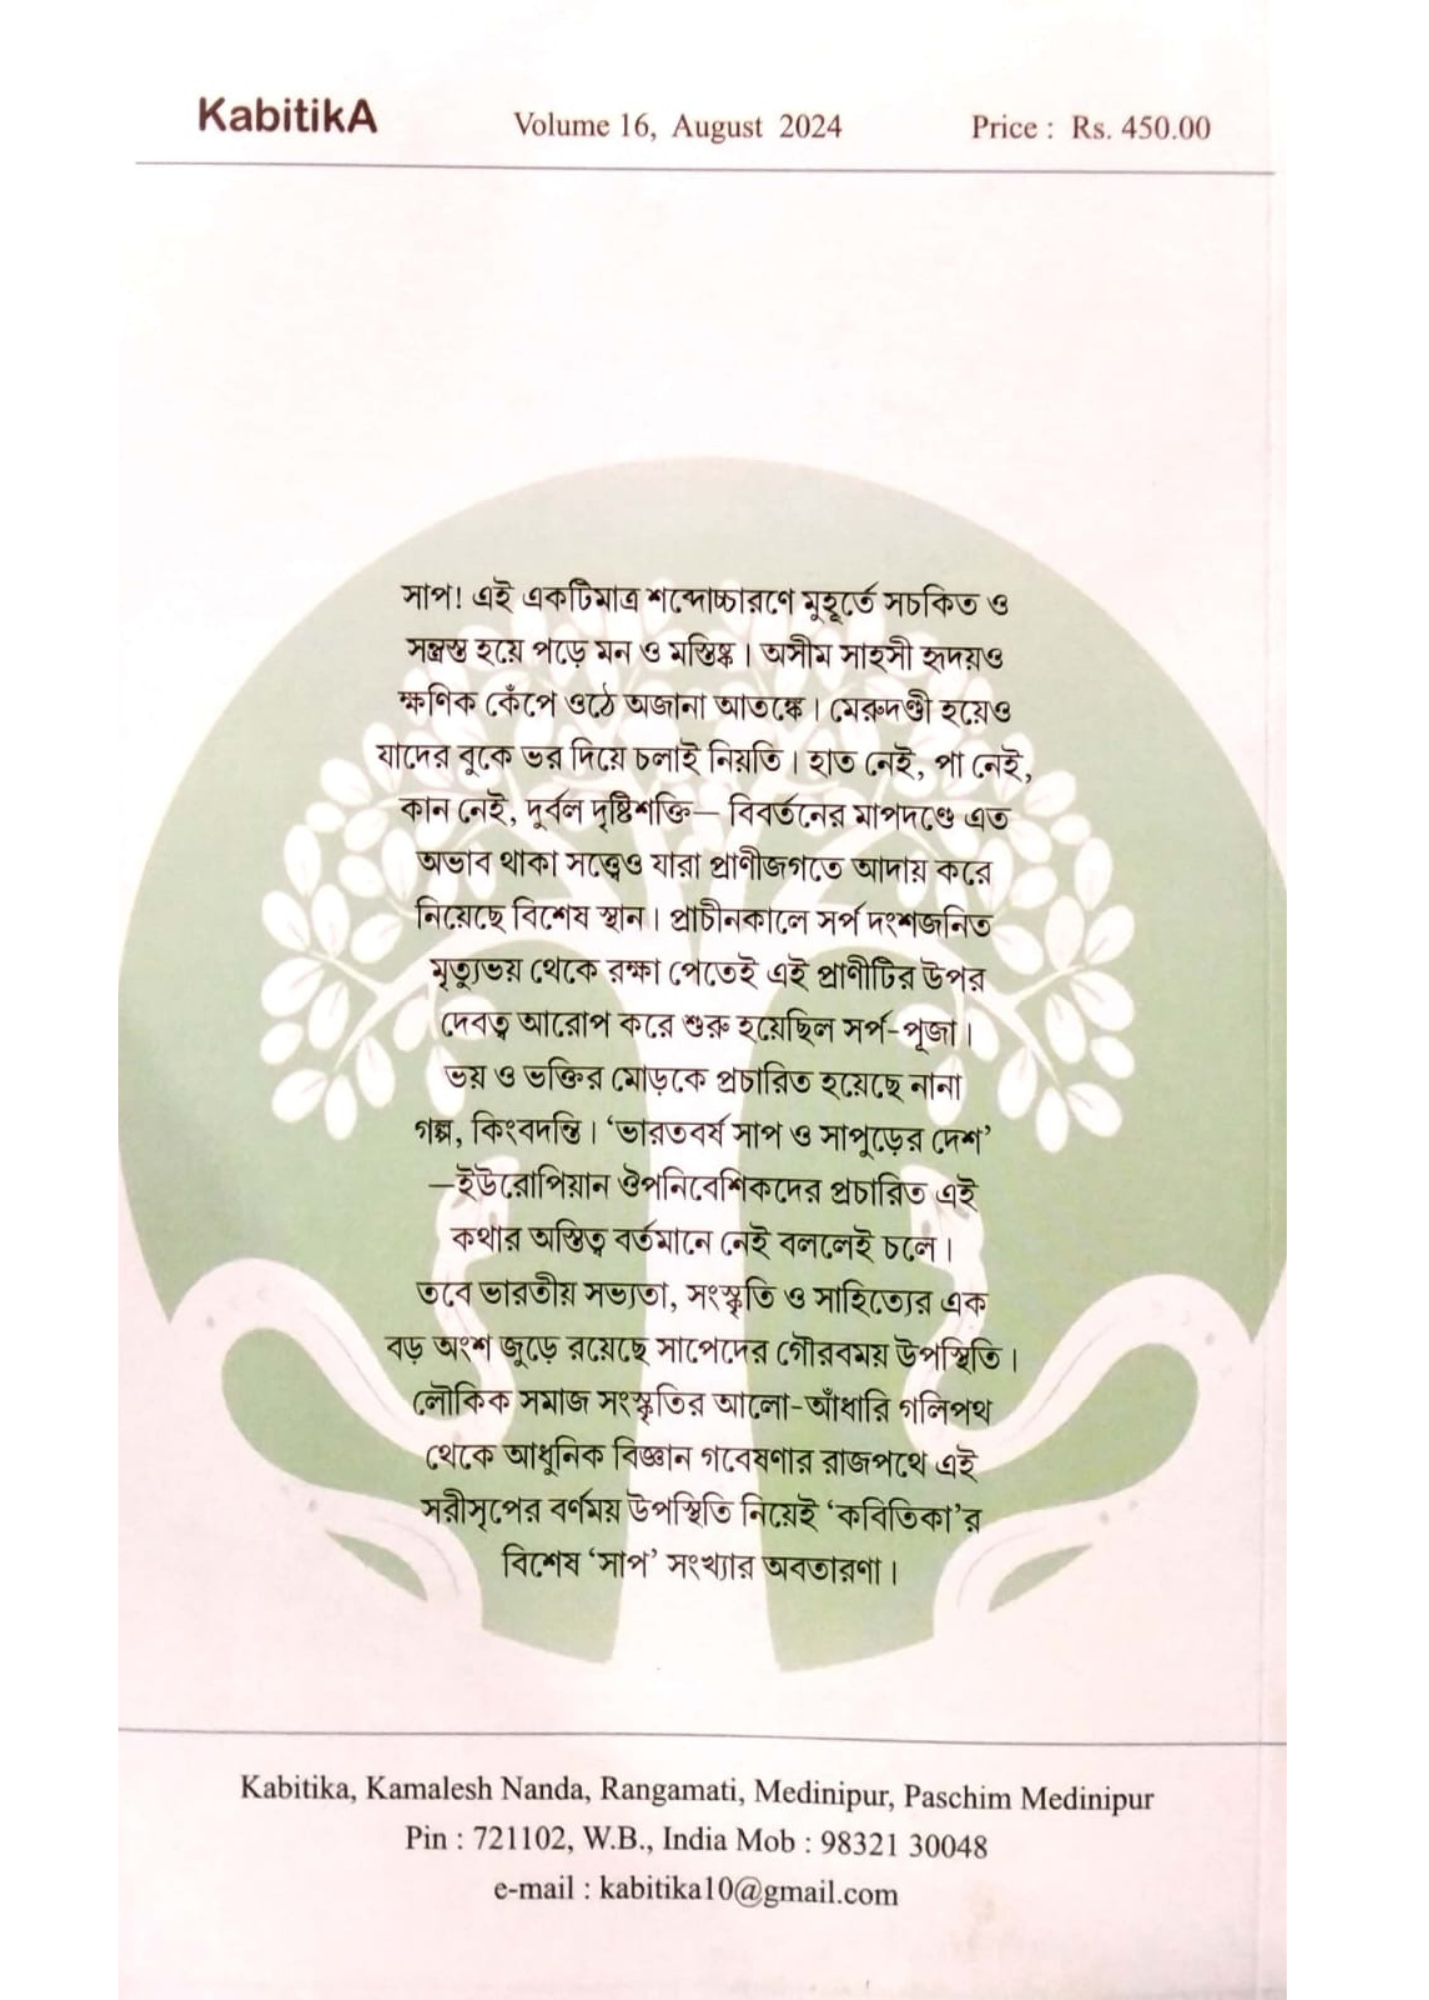 KabitikA Volume 16, August 2024 Price : Rs. 450.00
সাপ! এই একটিমাত্র শব্দোচ্চারণে মুহূর্তে সচকিত ও
সন্ত্রস্ত হয়ে পড়ে মন ও মস্তিষ্ক। অসীম সাহসী হৃদয়ও
ক্ষণিক কেঁপে ওঠে অজানা আতঙ্কে। মেরুদণ্ডী হয়েও
যাদের বুকে ভর দিয়ে চলাই নিয়তি। হাত নেই, পা নেই,
কান নেই, দুর্বল দৃষ্টিশক্তি— বিবর্তনের মাপদণ্ডে এত
অভাব থাকা সত্ত্বেও যারা প্রাণীজগতে আদায় করে
নিয়েছে বিশেষ স্থান। প্রাচীনকালে সর্প দংশজনিত
মৃত্যুভয় থেকে রক্ষা পেতেই এই প্রাণীটির উপর
দেবত্ব আরোপ করে শুরু হয়েছিল সর্প-পূজা।
ভয় ও ভক্তির মোড়কে প্রচারিত হয়েছে নানা
গল্প, কিংবদন্তি। ‘ভারতবর্ষ সাপ ও সাপুড়ের দেশ’
—ইউরোপিয়ান ঔপনিবেশিকদের প্রচারিত এই
কথার অস্তিত্ব বর্তমানে নেই বললেই চলে।
তবে ভারতীয় সভ্যতা, সংস্কৃতি ও সাহিত্যের এক
বড় অংশ জুড়ে রয়েছে সাপেদের গৌরবময় উপস্থিতি।
লৌকিক সমাজ সংস্কৃতির আলো-আঁধারি গলিপথ
থেকে আধুনিক বিজ্ঞান গবেষণার রাজপথে এই
সরীসৃপের বর্ণময় উপস্থিতি নিয়েই ‘কবিতিকা’র
বিশেষ ‘সাপ’ সংখ্যার অবতারণা।
Kabitika, Kamalesh Nanda, Rangamati, Medinipur, Paschim Medinipur
Pin : 721102, W.B., India Mob : 98321 30048
e-mail : kabitika10@gmail.com